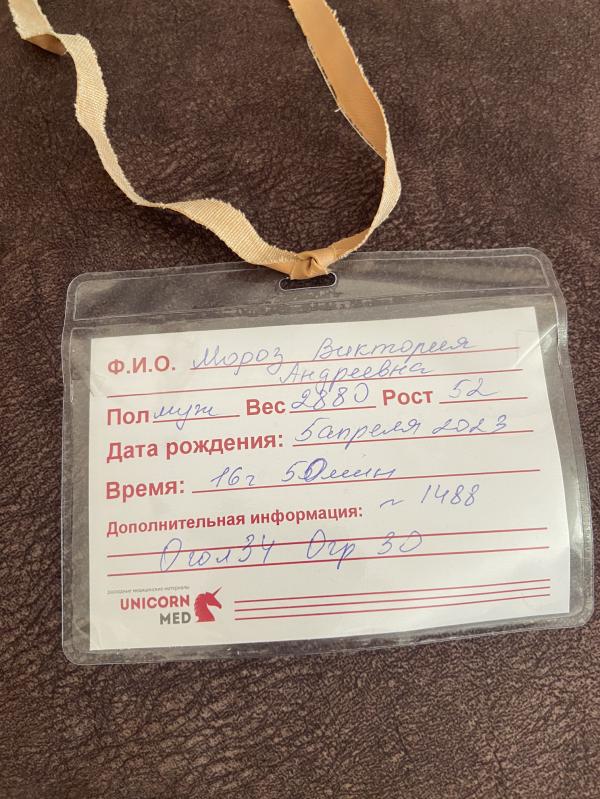 Ф.И.О. Мороз Виктория
Андреевна
Пол муж Вес 2880 Рост 52
Дата рождения: 5 апреля 2023
Время: 16ч 50мин
Дополнительная информация: ~ 1488
Огол34 Огр 30
расходные медицинские материалы
UNICORN
MED